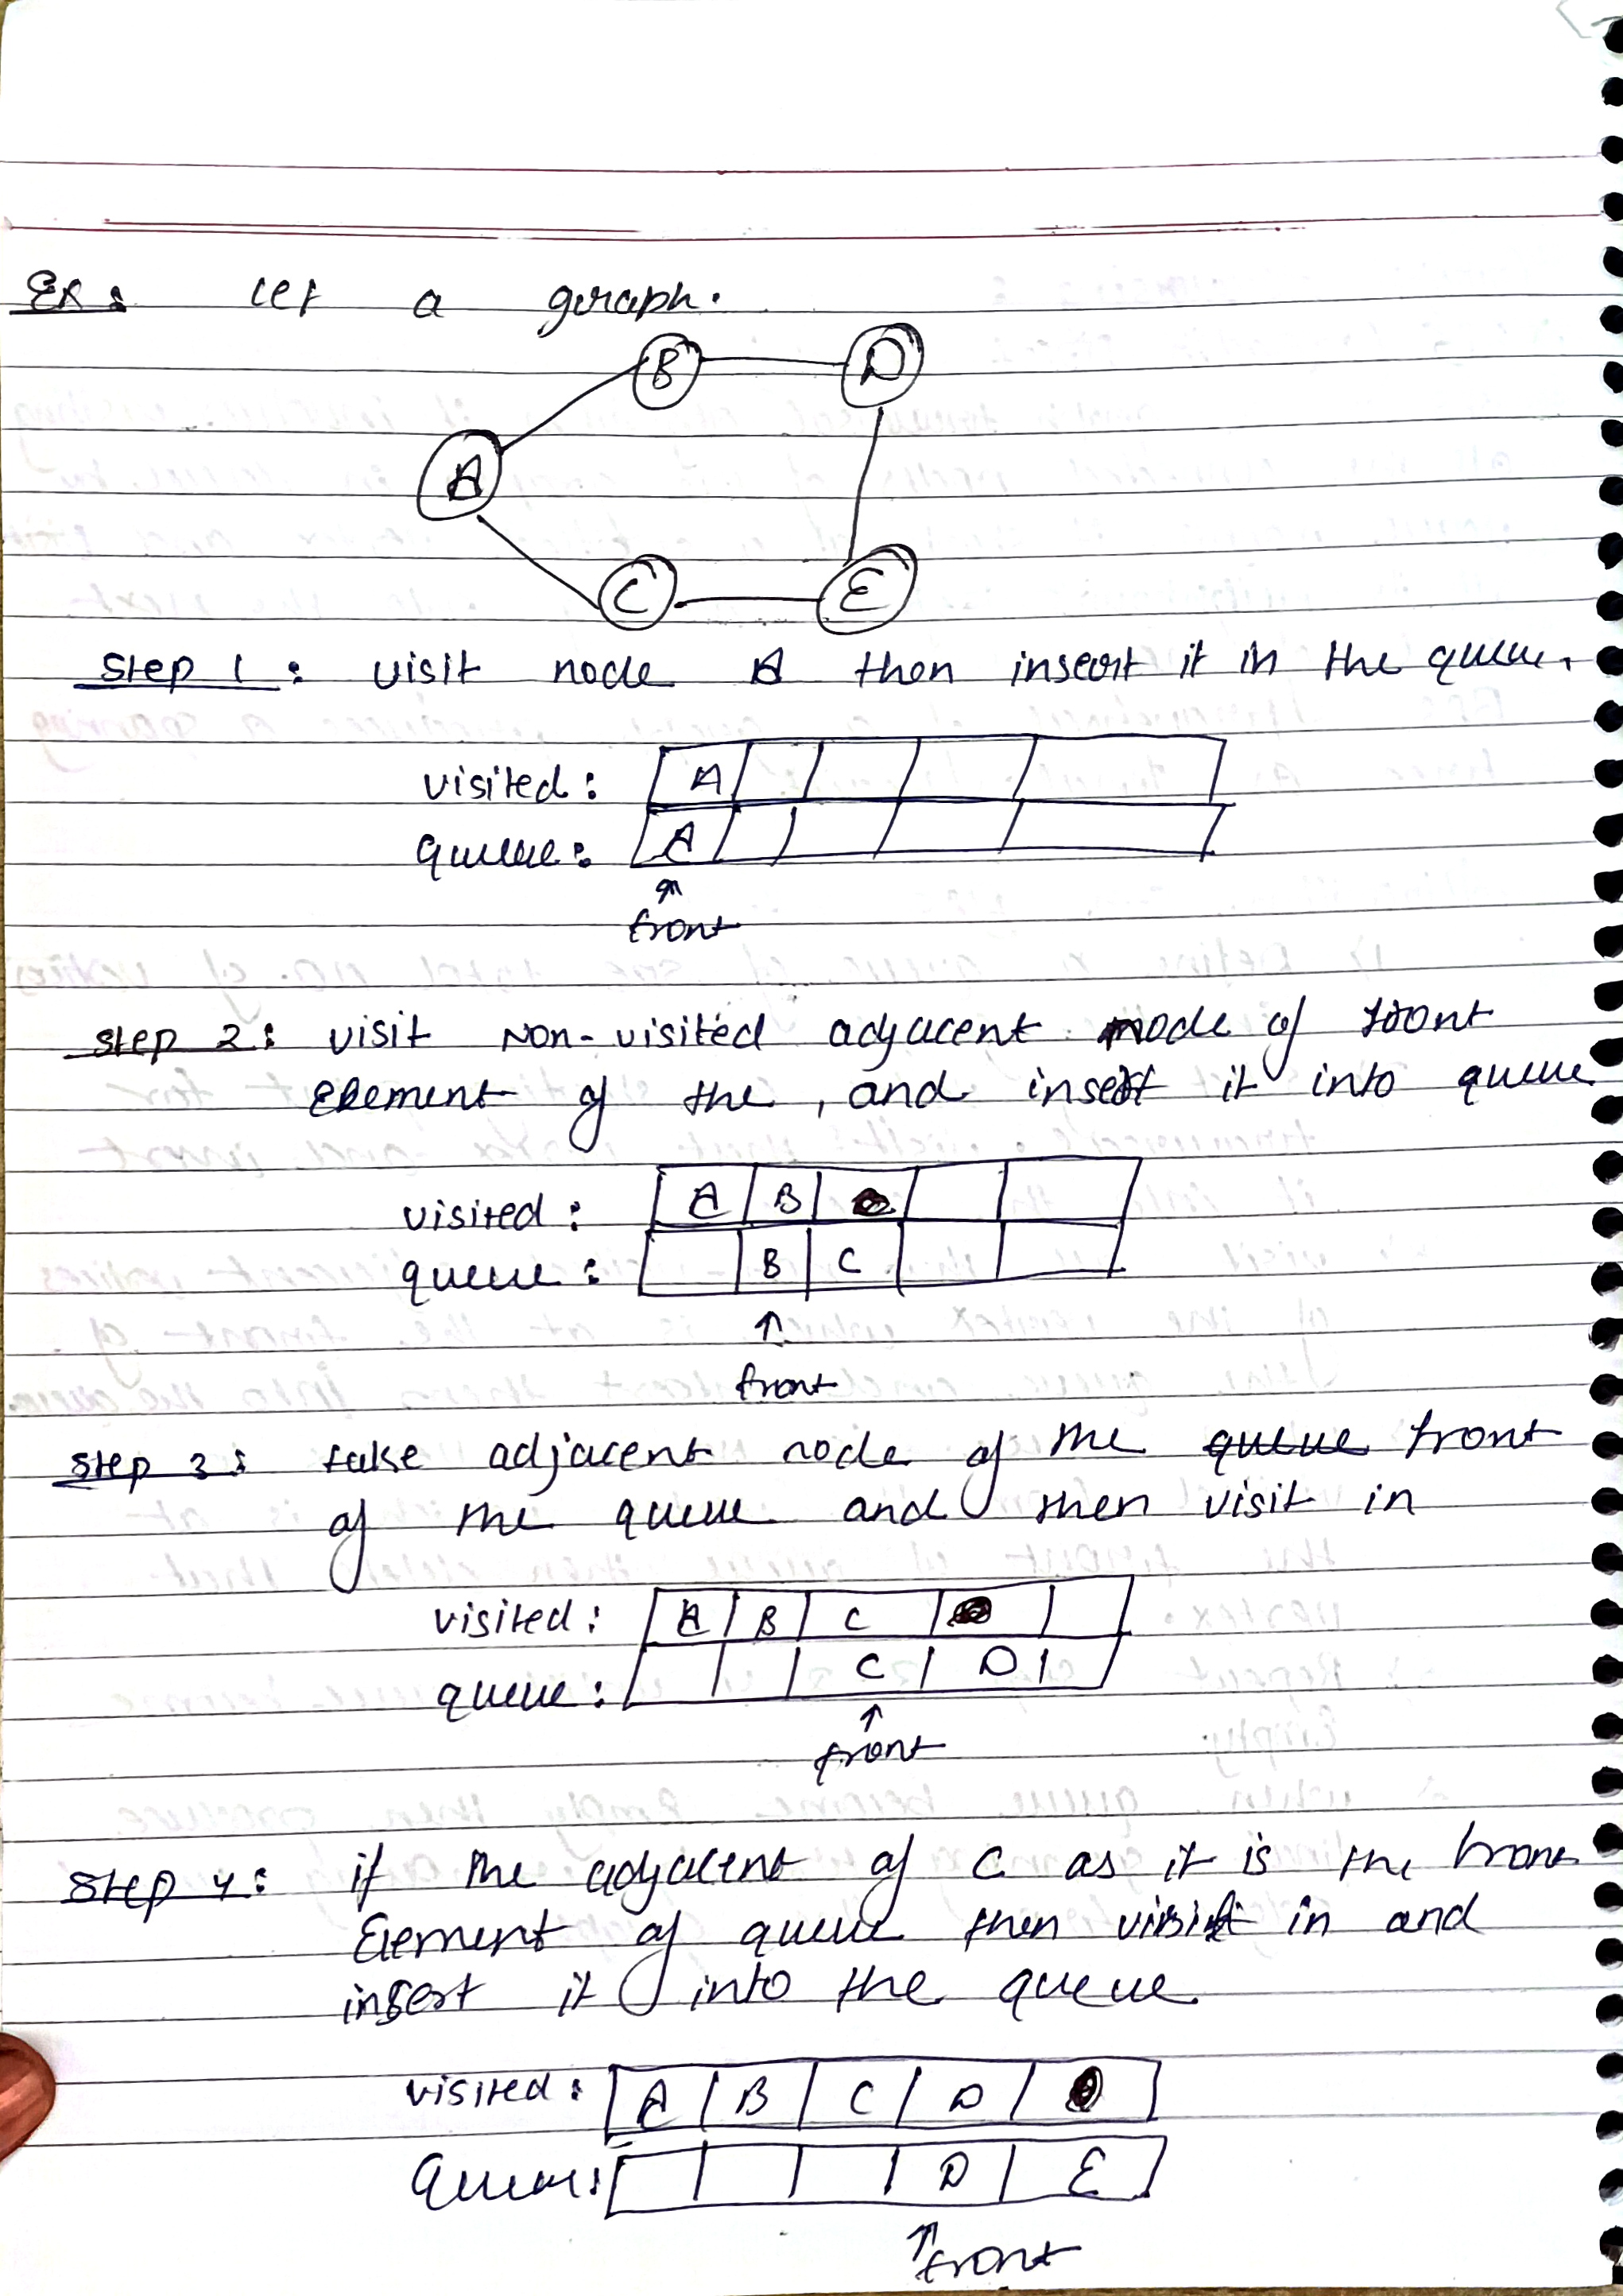 Ex: Let a graph.
B D
A
C E
Step 1: visit node A then insert it in the queue.
visited: A
queue: A
front
Step 2: visit Non-visited adjacent node of front
Element of the, and insert it into queue
visited: A B
queue: B C
front
Step 3: take adjacent node of the queue front
of the queue and then visit in
visited: A B C
queue: C D
front
Step 4: if the adjacent of C as it is the front
Element of queue then visit in and
insert it into the queue
visited: A B C D
Queue: D E
front